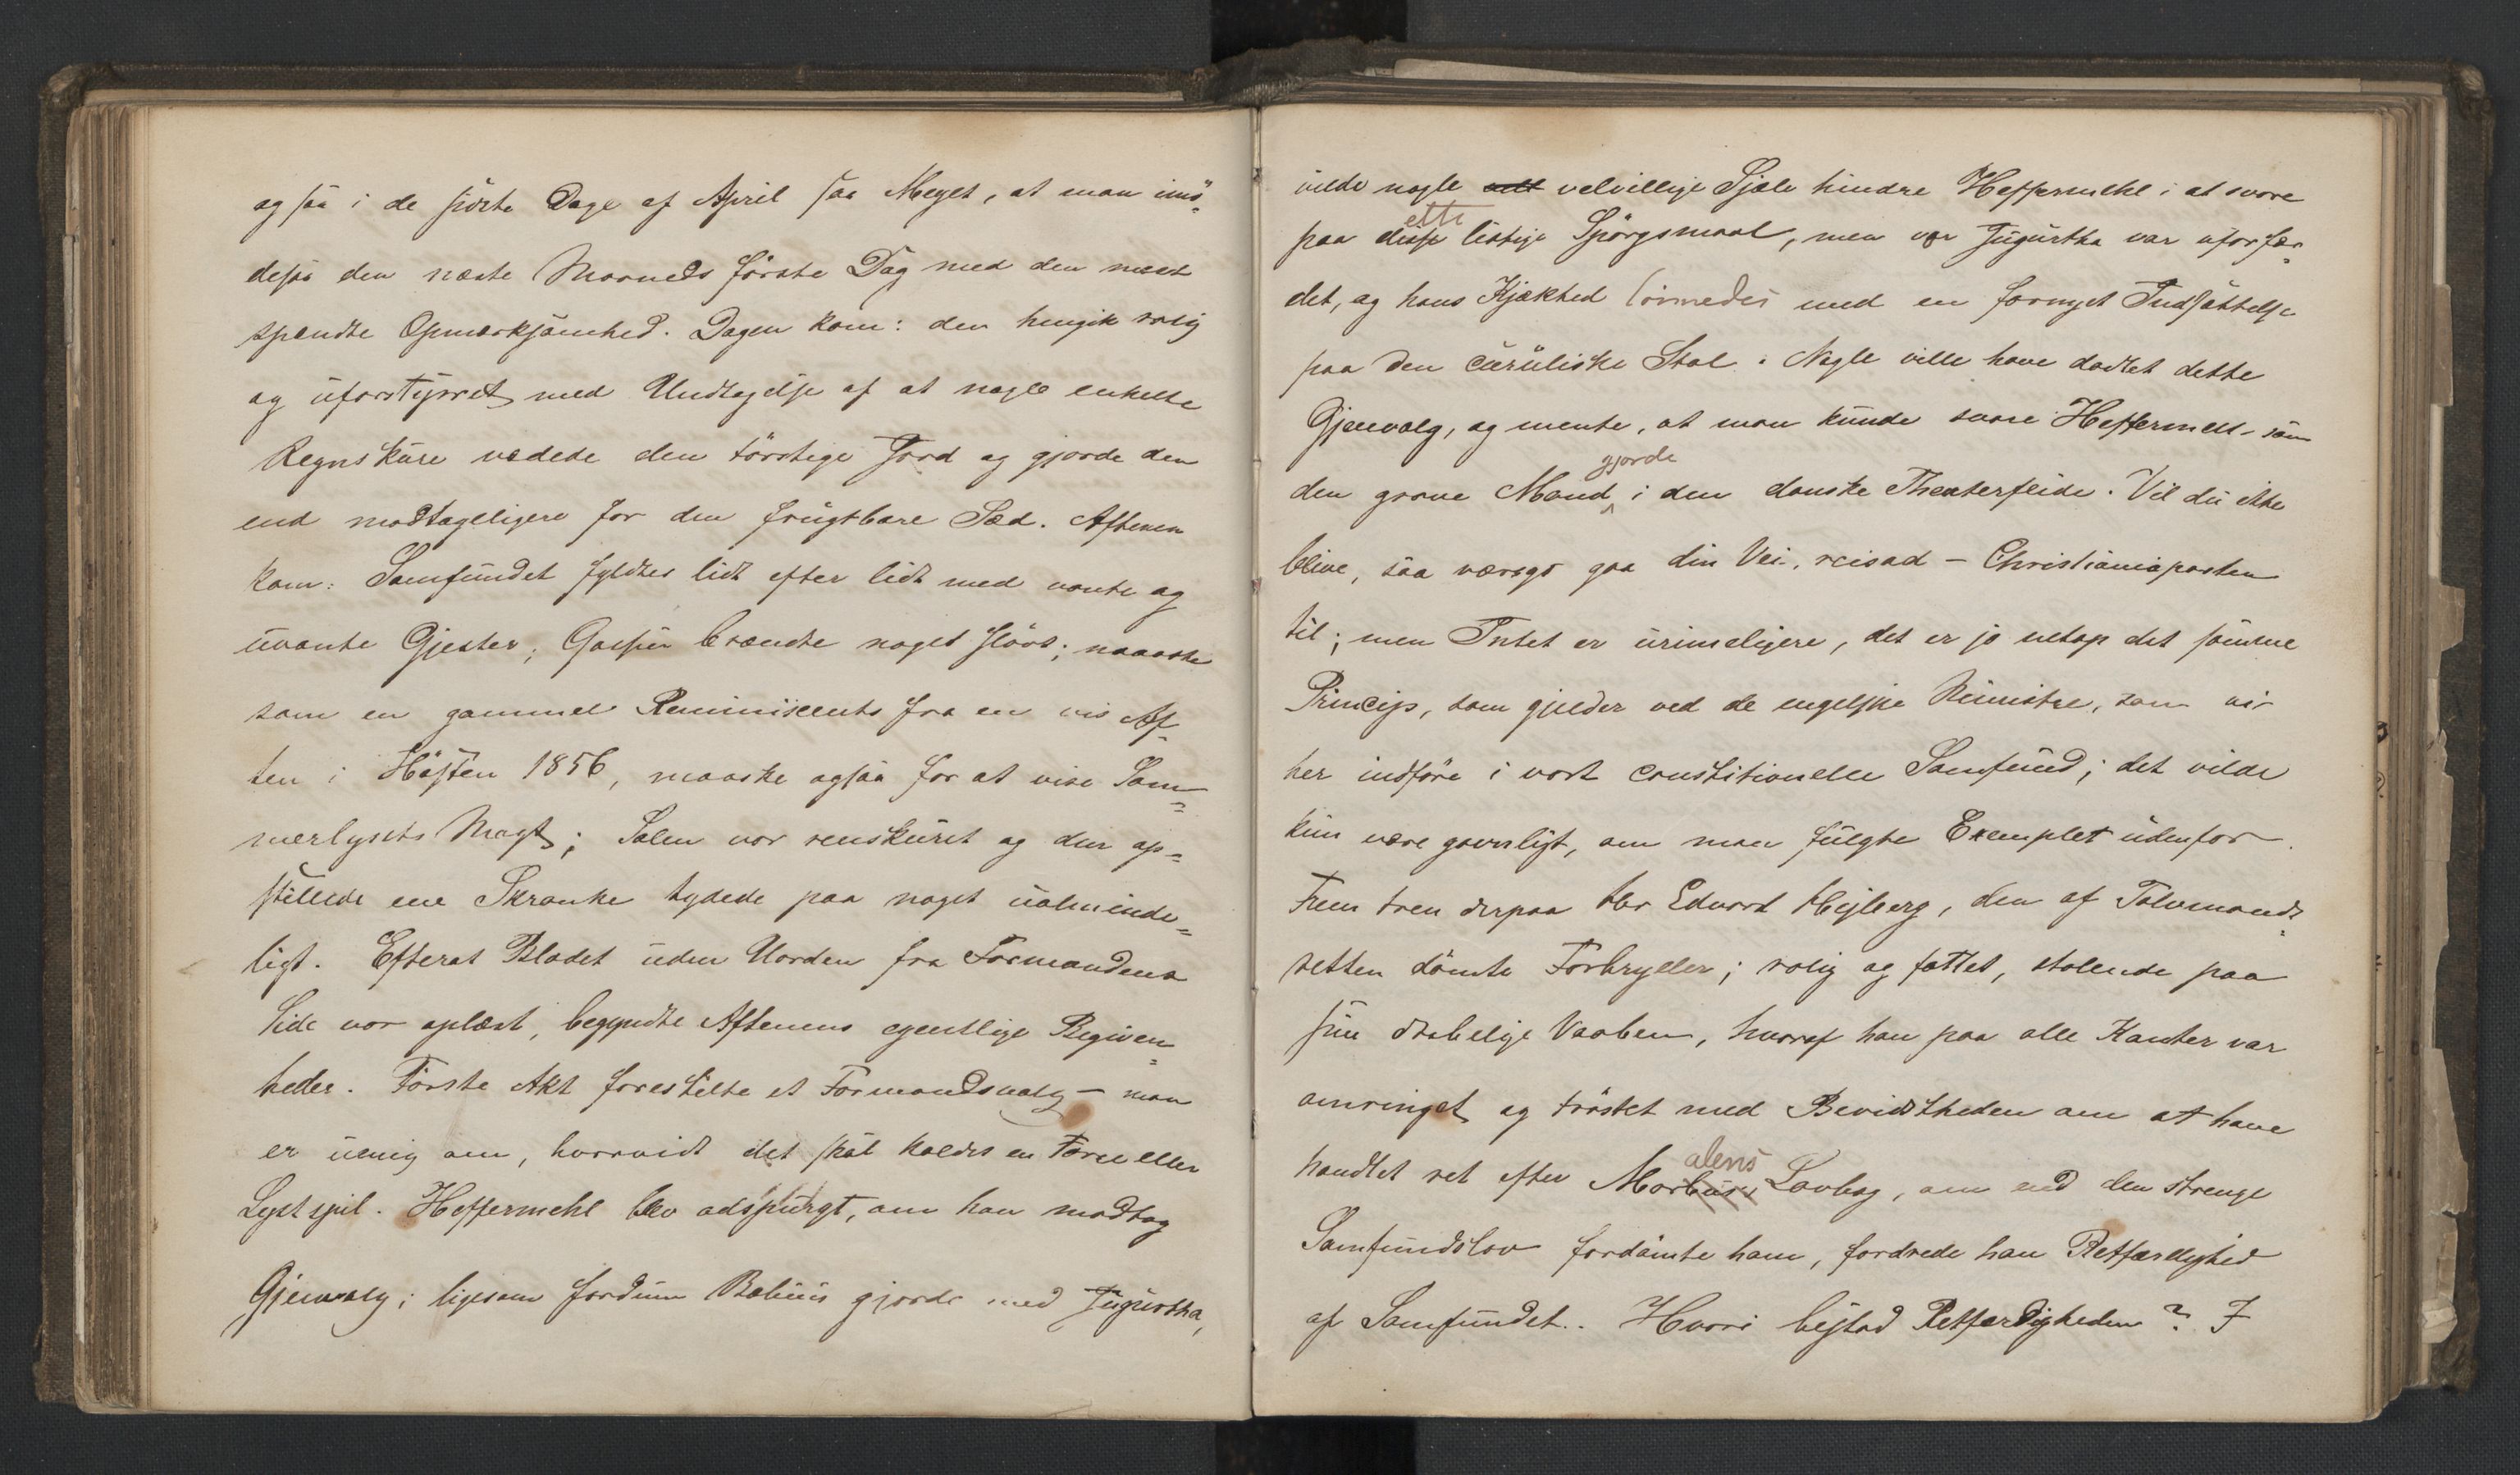 ogsaa i de sidste Dage af April saa Meget, at man imö-
desaa den næste Maaneds förste Dag med den mest
spændte Opmærksomhed. Dagen kom: den hengik rolig
og uforstyrret med Undtagelse af at nogle enkelte
Regnskure vædede den törstige Jord og gjorde den
end modtageligere for den frugtbare Sæd. Aftenen
kom: Samfundet fyldtes lidt efter lidt med vante og
uvante Gjester; Gassen brændte noget slövt; maaske
som en gammel Reminiscents fra en vis Af-
ten i Hösten 1856, maaske ogsaa for at vise Som-
merlysets Magt; Salen var renskuret og den op-
stillede ene Skranke tydede paa noget ualminde-
ligt. Efterat Bladet uden Uorden fra Formandens
Side var oplæst, begyndte Aftenens egentlige Begiven-
heder. Förste Akt forestilte et Formandsvalg – man
er uenig om, hvorvidt det skal kaldes en Farce eller
Lystspil. Heffermehl blev adspurgt, om han modtog
Gjenvalg; ligesom fordum Bæbius gjorde med Jugurtha,
vilde nogle velvillige Sjæle hindre Heffermehl i at svare
paa dette listige Spörgsmaal, men vor Jugurtha var uforfær-
det, og hans Kjækhed lönnedes med en fornyet Indsættelse
paa den curuliske Stol. Nogle ville have dadlet dette
Gjenvalg, og mente, at man kunde svare Heffermehl – som
den grove Mand gjorde i den danske Theaterfeide. Vil du ikke
blive, saa værsgo gaa din Vei, reisad – Christianiaposten
til; men Intet er urimeligere, det er jo netop det samme
Princip, som gjælder ved de engelske Ministre, som vi
her indföre i vort constitionelle Samfund; det vilde
kun være gavnligt, om man fulgte Exemplet udenfor.
Frem treen derpaa Hr Edvard Hejberg, den af Tolvmands-
retten dömte Forbryller; rolig og fattet, stolende paa
sine dræbelige Vaaben, hvoraf han paa alle Kanter var
omringet og tröstet med Bevidstheden om at have
handlet ret efter Moralens Lovbog, om end den strenge
Samfundslov fordömte ham, fordrede han Retfærdighed
af Samfundet. Hvori bestod Retfærdigheden? I